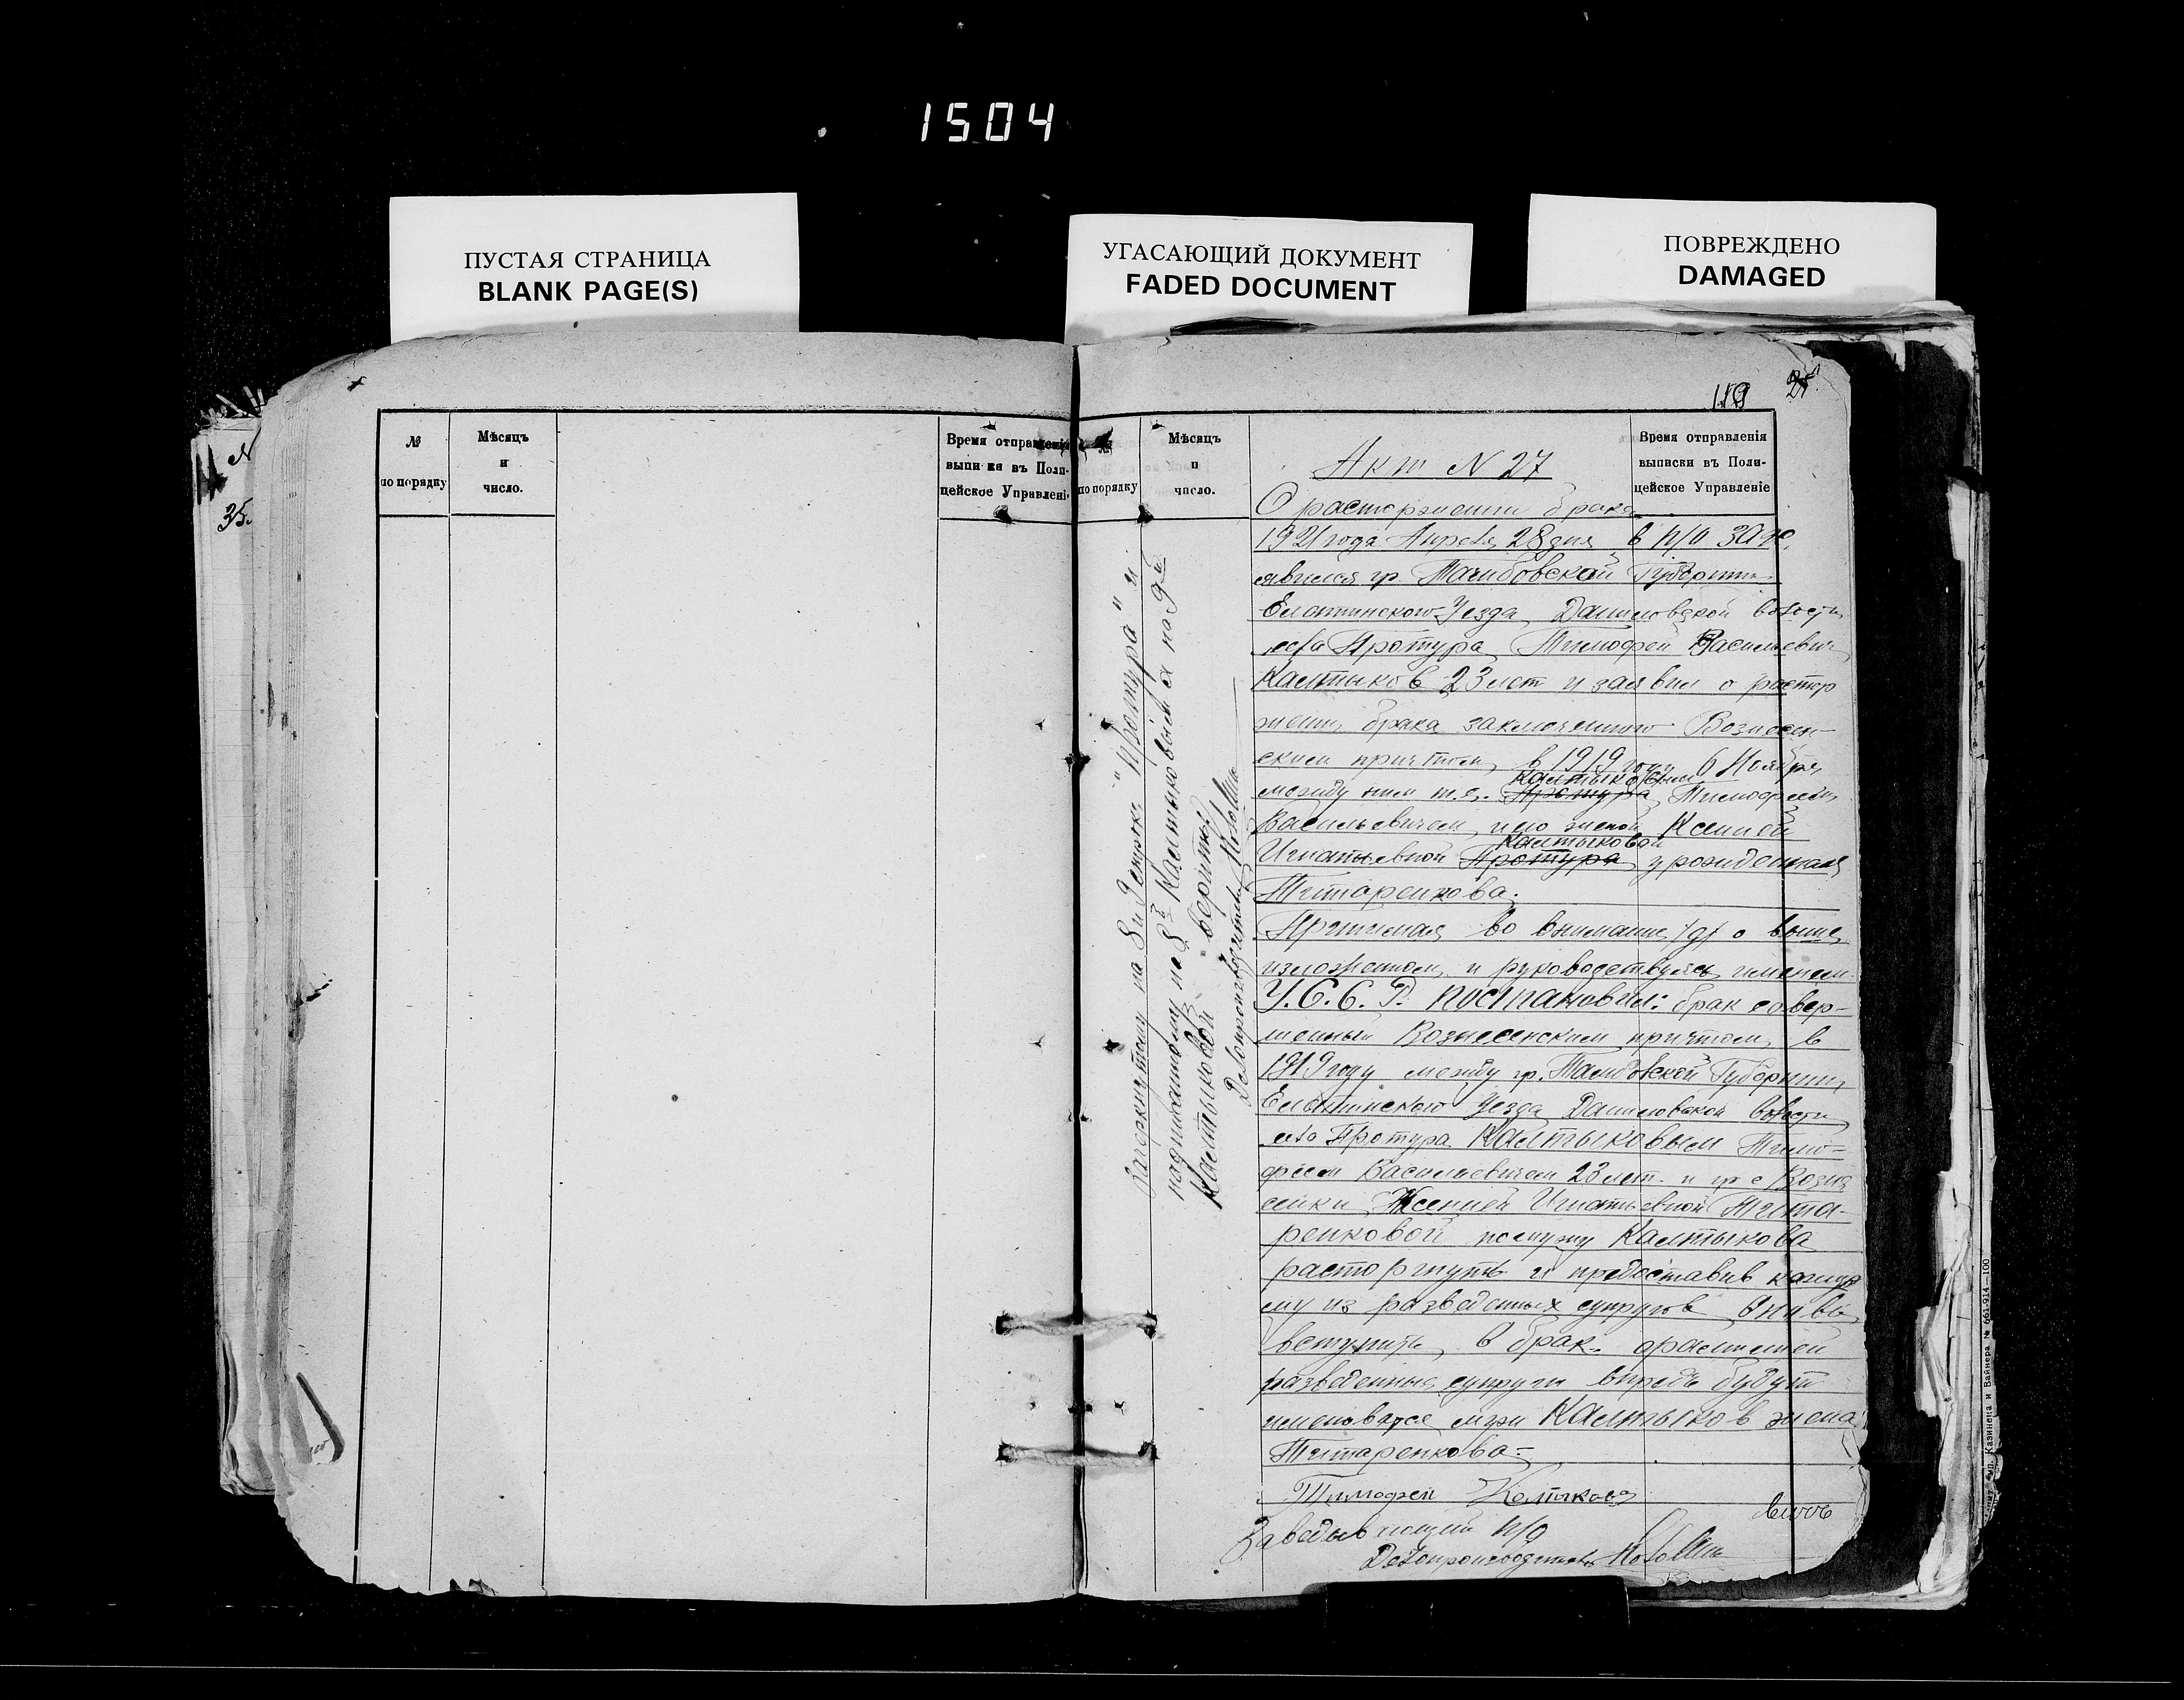 1504
ПУСТАЯ СТРАНИЦА
BLANK PAGE(S)
УГАСАЮЩИЙ ДОКУМЕНТ
FADED DOCUMENT
ПОВРЕЖДЕНО
DAMAGED
35.
№
по порядку
Мѣсяцъ
и
число.
Время отправленія
выписки въ Поли-
цейское Управленіе
119
№
по порядку
Мѣсяцъ
и
число.
Время отправленія
выписки въ Поли-
цейское Управленіе
Акт N 27
О расторжении брака
1921 года Апреля 28 дня в п/о ЗАГС
явился гр. Тамбовской Губернии
Елатинского Уезда, Даниловской волости
села Протура Тимофей Васильевич
Калтыков 23 лет и заявил о растор
жении брака заключенного Вознесен-
ским причтом, в 1919 году 6 Ноября
Калтыковым
между ним т.е. Протура Тимофеем
Васильевичем, и его женой Ксенией
Калтыковой
Игнатьевной Протура, урожденная
Титаренкова.
Принимая во внимание о выше
изложенном и руководствуясь именем
У.С.С.Р. постановил: брак совер-
шенный Вознесенским причтом в
1919 году между гр. Тамбовской Губернии,
Елатинского Уезда Даниловской волости
села Протура Калтыковым Тимо-
феем Васильевичем 23 лет и гр с Возне
сенки Ксенией Игнатьевной Тита-
ренковой по мужу Калтыкова
расторгнуть и предоставив каждо
му из разведенных супругов вновь
вступить в брак. фамилией
разведенные супруги впредь будут
именоватся муж Калтыков жена
Титаренкова-
Тимофей Калтыков
Заведывающий п/о
Делопроизводитель
Зачеркнутому на 8й и 10й строке "Протура" и
надписанному на 8й Калтыковым и на 9й
Калтыковой - верить
Делопроизводитель
Казинеца и Вайнера № 661-914—100